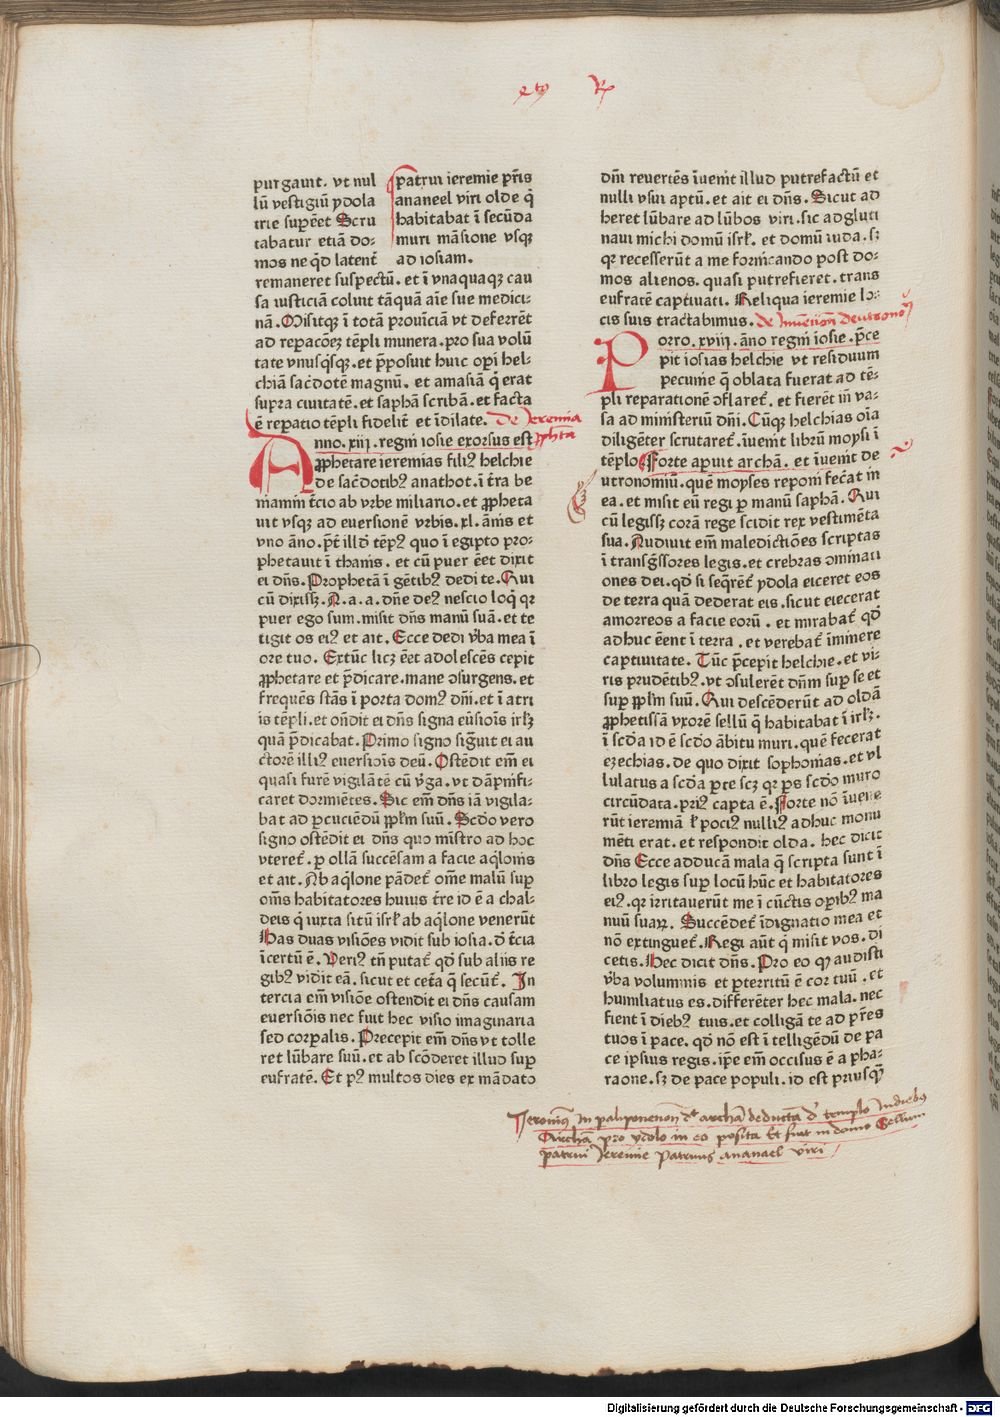 purgauit. vt nul
lū vestigiū ydola
trie supeēt Scru
tabatur etiā do-
mos ne qd latent̄
patrui ieremie pris
ananeel viri olde q̄
habitabat ī secūda
muri māsione vsqꝫ
ad iosiam.
remaneret suspectū. et ī vnaquaqꝫ cau
sa iusticiā coluit tāquā aīe sue medici-
nā. Misitqꝫ ī totā prouīciā vt deferrēt
ad repacōeꝫ tēpli munera. pro sua volū
tate vnusqsqꝫ. et pposuit huic opi hel-
chiā sacdotē magnū. et amasiā q erat
supra ciuitatē. et saphā scribā. et facta
ē repatio tēpli fidelit̄ et īdilate. de Jeremia
ꝓphta
Anno. xiij. regni iosie exorsus est
ꝓphetare ieremias filiꝰ helchie
de sacdotibꝰ anathot. ī t̄ra be
niamin t̄cio ab vrbe miliario. et ꝓpheta
uit vsqꝫ ad euersionē vrbis. xl. ānis et
vno āno. pt̄ illd tēpꝰ quo ī egipto pro-
phetauit ī thanis. et cū puer eēt dixit
ei dn̄s. Prophetā ī gētibꝰ dedi te. Qui
cū dixissꝫ. A. a. a. dn̄e deꝰ nescio loq qr
puer ego sum. misit dn̄s manū suā. et te
tigit os eiꝰ et ait. Ecce dedi v̄ba mea ī
ore tuo. Extūc licꝫ eēt adolescēs cepit
ꝓphetare et p̄dicare. mane ꝯsurgens. et
frequēs stās ī porta domꝰ dn̄i. et ī atri
is tēpli. et on̄dit ei dn̄s signa eūsiōis irlꝫ
quā p̄dicabat. Primo signo sigūit ei au
ctorē illiꝰ euersiōis deū. Ostēdit em̄ ei
quasi furē vigilātē cū v̄ga. vt dāpnifi-
caret dormiētes. Sic em̄ dn̄s iā vigila-
bat ad pcuciēdū pplm̄ suū. Scdo vero
signo ostēdit ei dn̄s quo mīstro ad hoc
vteret̄. p ollā succēsam a facie aqlonis
et ait. Ab aqlone pādet̄ om̄e malū sup
om̄s habitatores huius t̄re id ē a chal-
deis q iuxta sitū isrl̄ ab aqlone venerūt
Has duas visiōes vidit sub iosia. d̄ t̄cia
īcertū ē. Veriꝰ tn̄ putat̄ qd sub aliis re
gibꝰ vidit eā. sicut et cet̄a q secūt̄. In
tercia em̄ visiōe ostendit ei dn̄s causam
euersiōis nec fuit hec visio imaginaria
sed corpalis. Precepit em̄ dn̄s vt tolle
ret lūbare suū. et ab scōderet illud sup
eufratē. Et pꝰ multos dies ex mādato
dn̄i reuertēs īuenit illud putrefactū et
nulli vsui aptū. et ait ei dn̄s. Sicut ad
heret lūbare ad lūbos viri. sic adgluti
naui michi domū isrl̄. et domū iuda. sꝫ
qr recesserūt a me fornicando post do-
mos alienos. quasi putrefieret. trans
eufratē captiuati. Reliqua ieremie lo-
cis suis tractabimus.
Porro. xviij. āno regni iosie. p̄ce
pit iosias helchie vt residuum
pecunie q oblata fuerat ad tē-
pli reparationē ꝯflaret̄. et fierēt in va-
sa ad ministeriū dn̄i. Cūqꝫ helchias oīa
diligēter scrutaret̄. īuenit librū moysi ī
tēplo Forte apuit archā. et īuenit de
utronomiū. quē moyses reponi fecāt in
ea. et misit eū regi p manū saphā. Qui
cū legissꝫ corā rege scidit rex vestimēta
sua. Audiuit em̄ maledictiōes scriptas
ī transgssores legis. et crebras ꝯminati
ones dei. qd si seqrēt̄ ydola eiceret eos
de terra quā dederat eis. sicut eiecerat
amorreos a facie eorū. et mirabat̄ qd
adhuc eēnt ī terra. et verebat̄ īminere
captiuitate. Tūc p̄cepit helchie. et vi-
ris prudētibꝰ. vt ꝯsulerēt dn̄m sup se et
sup pplm̄ suū. Qui descēderūt ad oldā
ꝓphetissā vxorē sellū q habitabat ī irlꝫ.
ī scda id ē scdo ābitu muri. quē fecerat
ezechias. de quo dixit sophonias. et vl
lulatus a scda pte scꝫ qr ps scdo muro
circūdata. priꝰ capta ē. Forte nō īuene
rūt ieremiā l̄ pociꝰ nulliꝰ adhuc monu
mēti erat. et respondit olda. hec dicit
dn̄s Ecce adducā mala q scripta sunt ī
libro legis sup locū hūc et habitatores
eiꝰ. qr irritauerūt me ī cūctis opibꝰ ma
nuū suaꝝ. Succēdet̄ īdignatio mea et
nō extinguet̄. Regi aūt q misit vos. di
cetis. Hec dicit dn̄s. Pro eo qꝫ audisti
v̄ba voluminis et pterritū ē cor tuū. et
humiliatus es. differēter hec mala. nec
fient ī diebꝰ tuis. et colligā te ad p̄res
tuos ī pace. qd nō est ī telligēdū de pa
ce ipsius regis. ip̄e em̄ occisus ē a pha-
raone. sꝫ de pace populi. id est priusqꝫ
Jeronimꝰ in palipomenon archā deductā d templo Judiebꝰ
Archā pro ydolo in eo posita Et fuit in domo Sellum
patrui Jeremie Patruus ananael viri
Digitalisierung gefördert durch die Deutsche Forschungsgemeinschaft - DFG